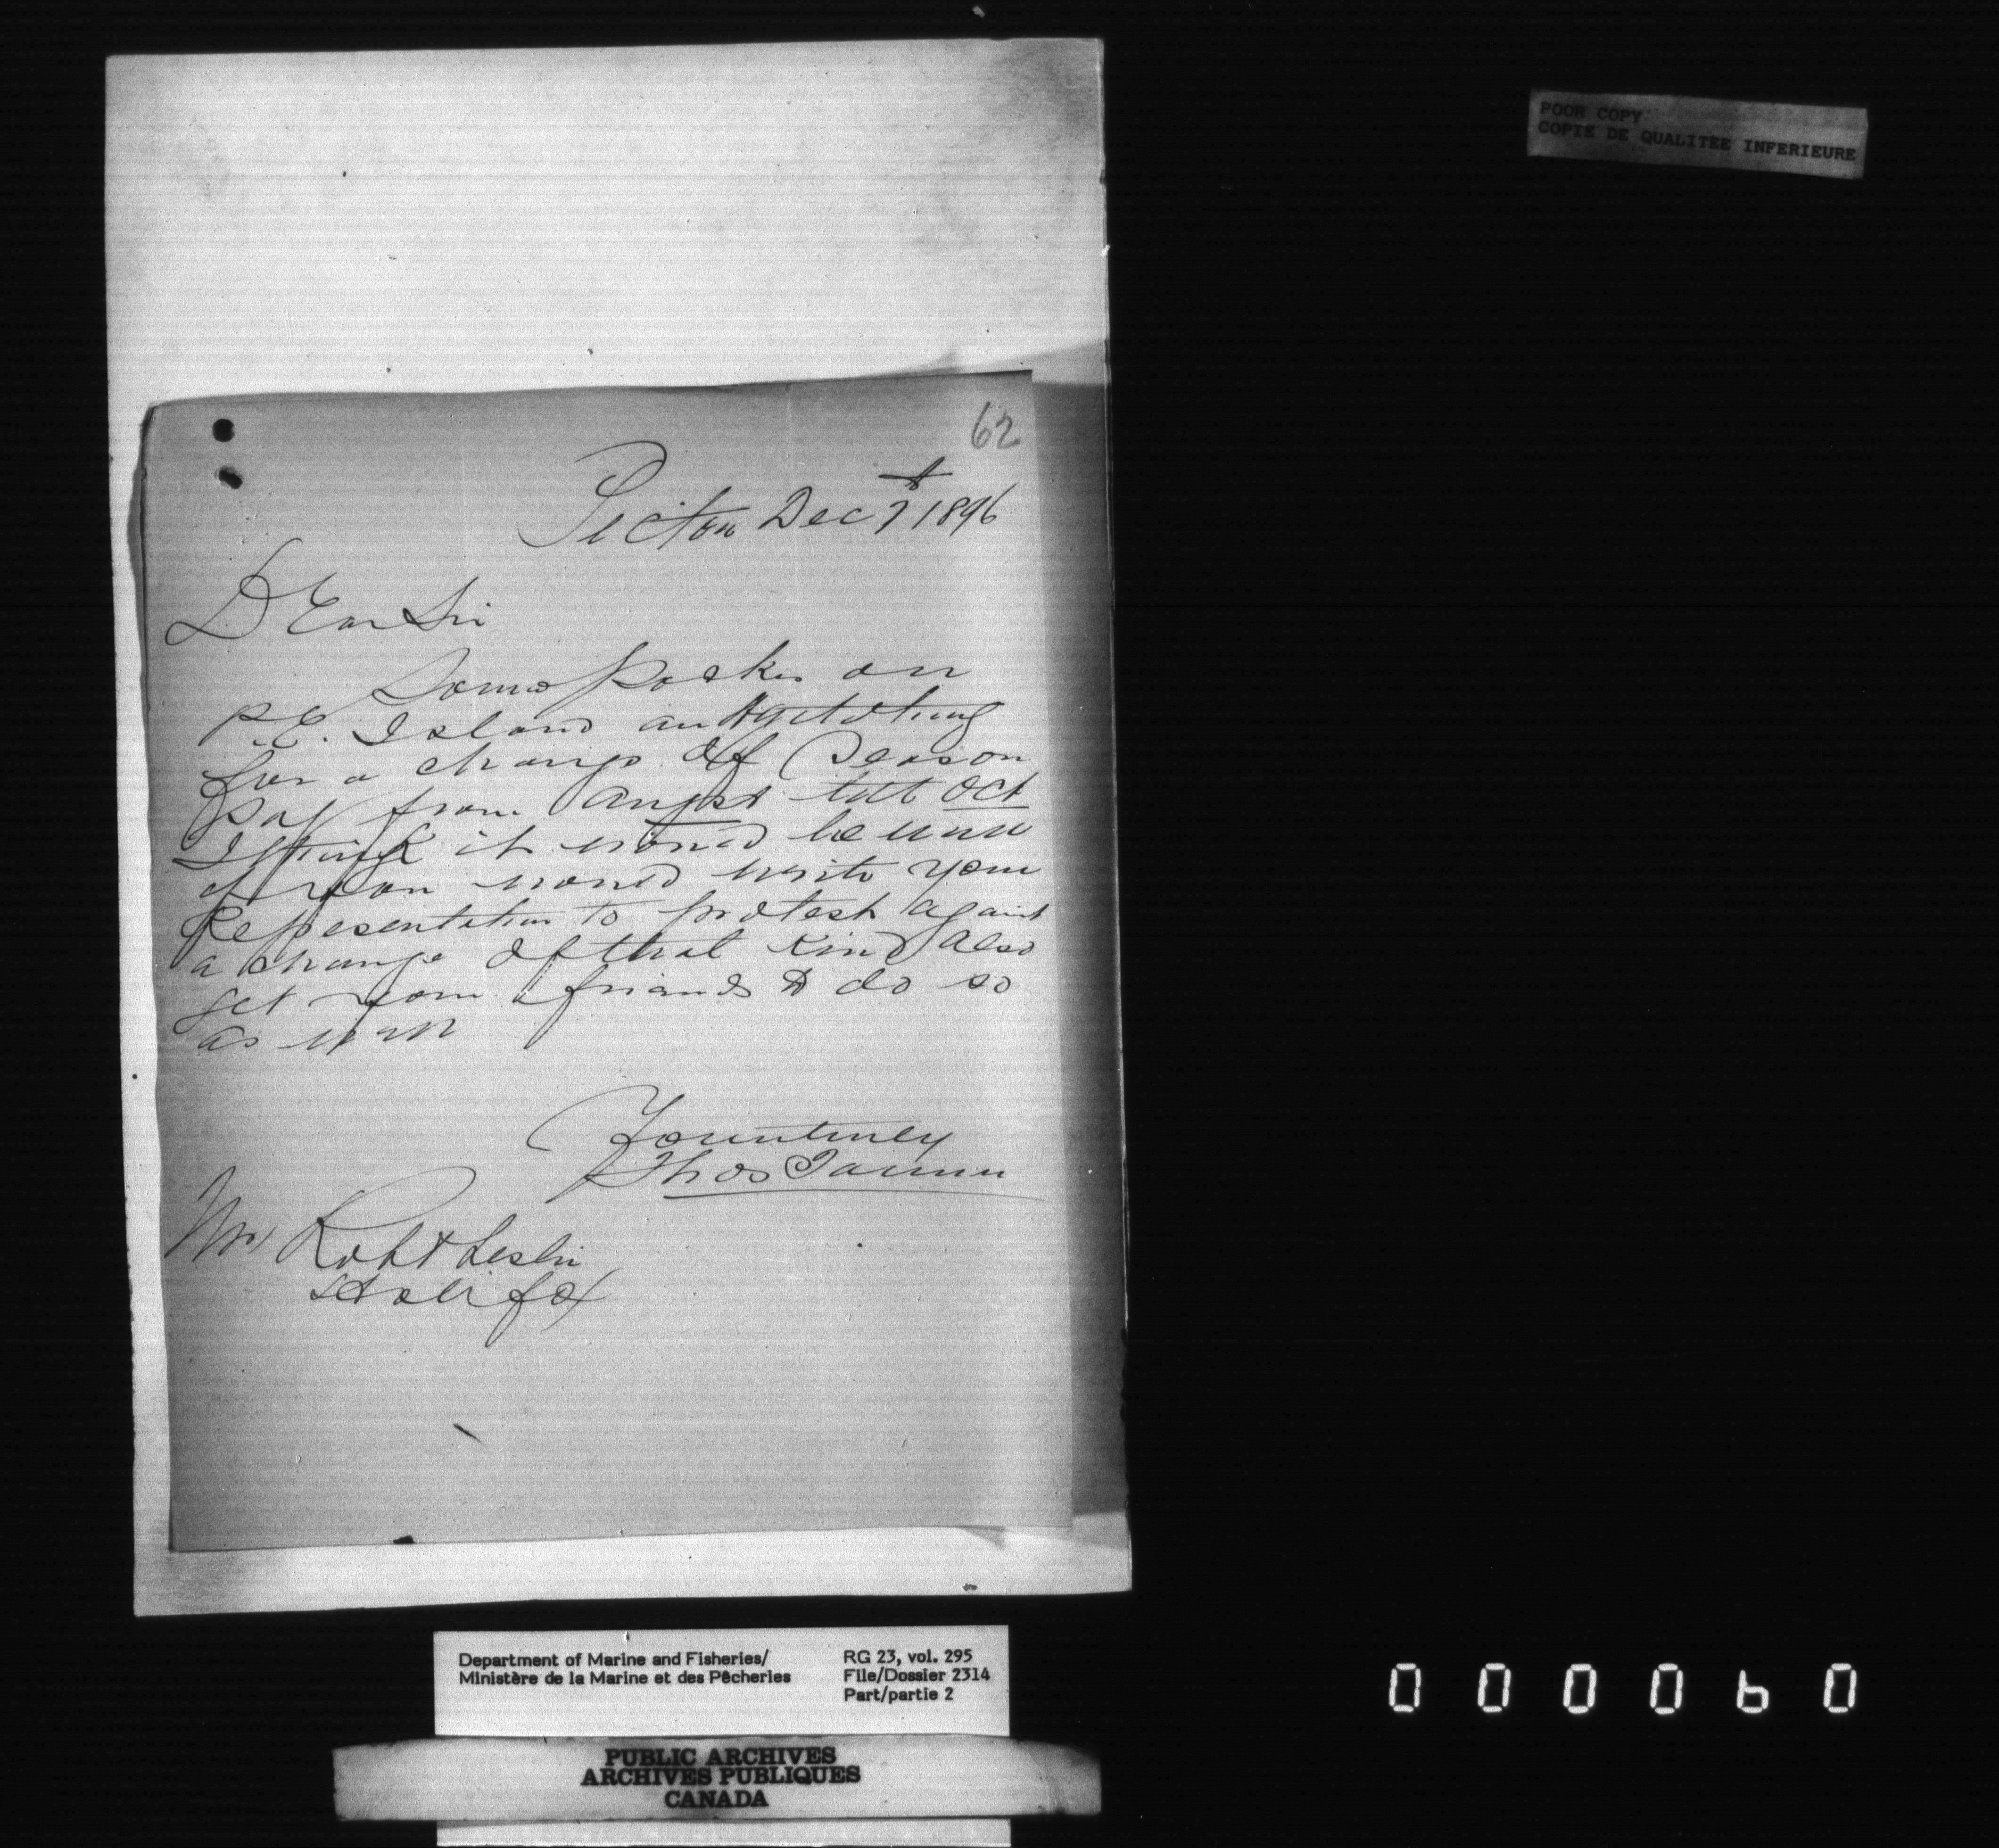 POOR COPY
COPIE DE QUALITEE INFERIEURE
62
Pictou Dec 7 1896
Dear Sir
Some Packers on
P.E. Island are Agitating
for a change of Season
say from Augst till Oct
I think it would be well
if you would write your
Representation to protest against
a change of that kind also
get your friends to do so
as well
Yours truly
Thos
Mr Robt Leslie
Halifax
Department of Marine and Fisheries/
Ministère de la Marine et des Pêcheries
RG 23, vol. 295
File/Dossier 2314
Part/partie 2
PUBLIC ARCHIVES
ARCHIVES PUBLIQUES
CANADA
000060